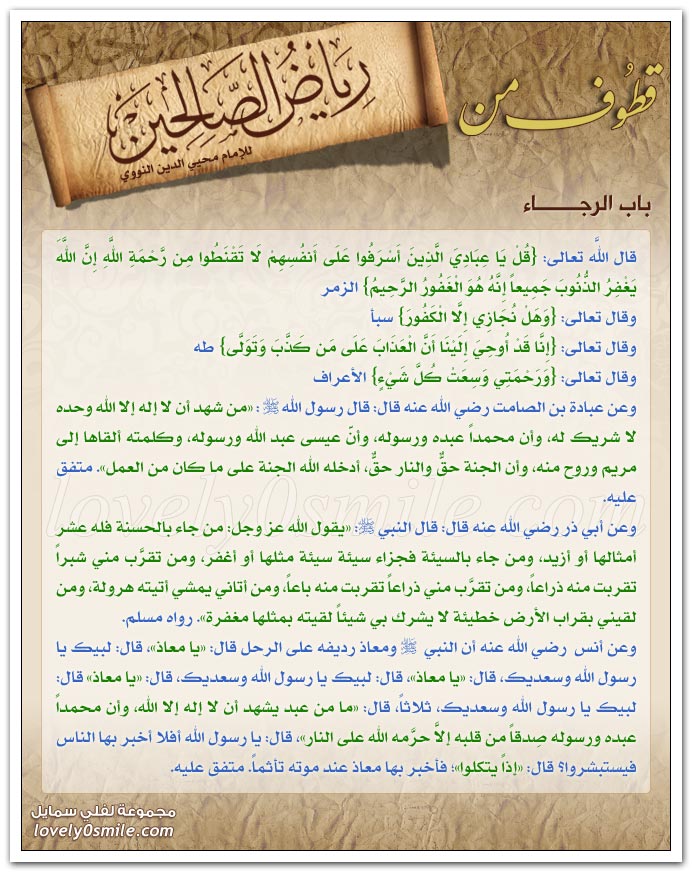 قطوف من
رياض الصالحين
للإمام محيي الدين النووي
باب الرجـــــاء
قال اللَّه تعالى: {قُلْ يَا عِبَادِيَ الَّذِينَ أَسْرَفُوا عَلَى أَنفُسِهِمْ لَا تَقْنَطُوا مِن رَّحْمَةِ اللَّهِ إِنَّ اللَّهَ
يَغْفِرُ الذُّنُوبَ جَمِيعاً إِنَّهُ هُوَ الْغَفُورُ الرَّحِيمُ} الزمر
وقال تعالى: {وَهَلْ نُجَازِي إِلَّا الْكَفُورَ} سبأ
وقال تعالى: {إِنَّا قَدْ أُوحِيَ إِلَيْنَا أَنَّ الْعَذَابَ عَلَى مَن كَذَّبَ وَتَوَلَّى} طه
وقال تعالى: {وَرَحْمَتِي وَسِعَتْ كُلَّ شَيْءٍ} الأعراف
وعن عبادة بن الصامت رضي الله عنه قال: قال رسول الله ﷺ : «من شهد أن لا إله إلا الله وحده
لا شريك له، وأن محمداً عبده ورسوله، وأنّ عيسى عبد الله ورسوله، وكلمته ألقاها إلى
مريم وروح منه، وأن الجنة حقٌّ والنار حقٌّ، أدخله الله الجنة على ما كان من العمل». متفق
عليه.
وعن أبي ذر رضي الله عنه قال: قال النبي ﷺ: «يقول الله عز وجل: من جاء بالحسنة فله عشر
أمثالها أو أزيد، ومن جاء بالسيئة فجزاء سيئة سيئة مثلها أو أغفر، ومن تقرَّب مني شبراً
تقربت منه ذراعاً، ومن تقرَّب مني ذراعاً تقربت منه باعاً، ومن أتاني يمشي أتيته هرولة، ومن
لقيني بقراب الأرض خطيئة لا يشرك بي شيئاً لقيته بمثلها مغفرة». رواه مسلم.
وعن أنس رضي الله عنه أن النبي ﷺ ومعاذ رديفه على الرحل قال: «يا معاذ»، قال: لبيك يا
رسول الله وسعديك، قال: «يا معاذ»، قال: لبيك يا رسول الله وسعديك، قال: «يا معاذ» قال:
لبيك يا رسول الله وسعديك، ثلاثاً، قال: «ما من عبد يشهد أن لا إله إلا الله، وأن محمداً
عبده ورسوله صِدقاً من قلبه إلاَّ حرَّمه الله على النار»، قال: يا رسول الله أفلا أخبر بها الناس
فيستبشروا؟ قال: «إذاً يتكلوا»؛ فأخبر بها معاذ عند موته تأثماً. متفق عليه.
lovely0smile.com
مجموعة لفلي سمايل
lovely0smile.com